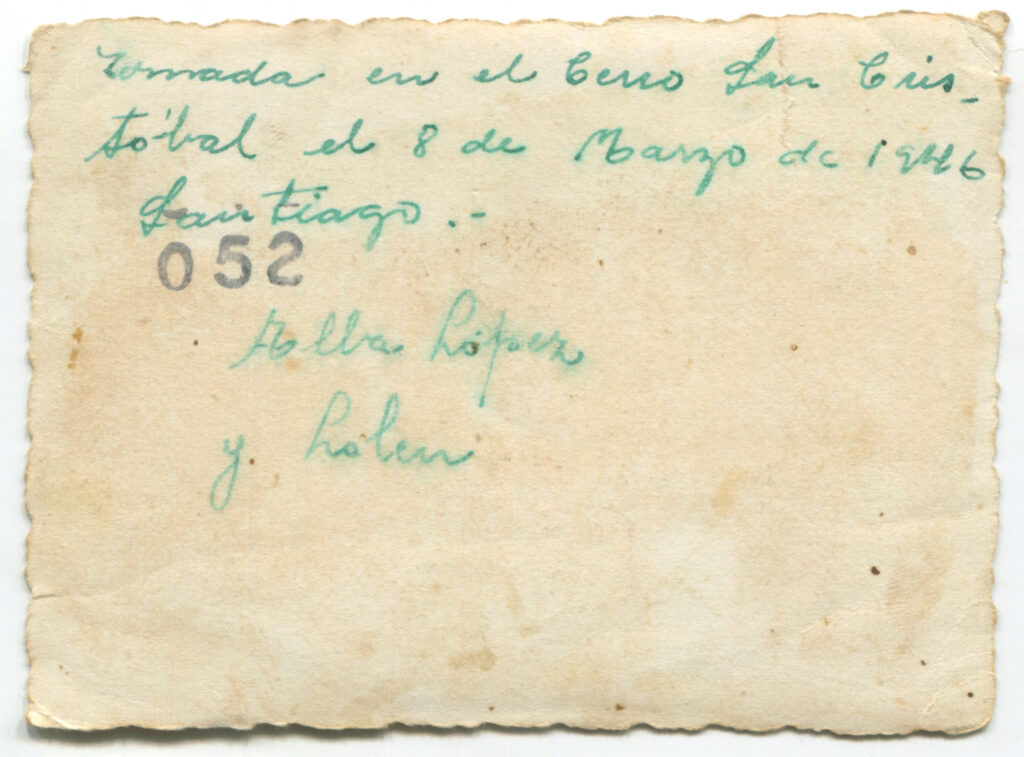 Tomada en el Cerro San Cris-
tóbal el 8 de Marzo de 1946
Santiago.-
052
Alba López
y Lolen